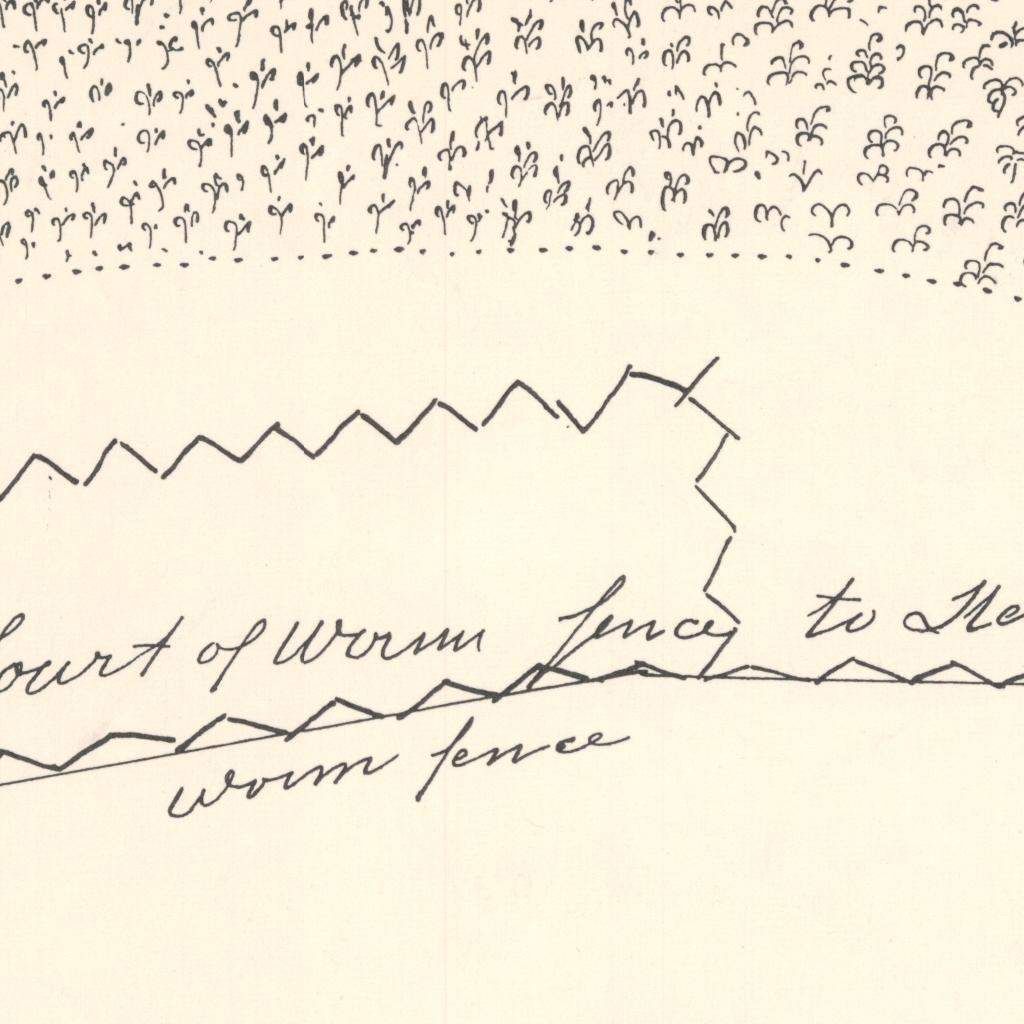 ourt of Worm fence to
worm fence